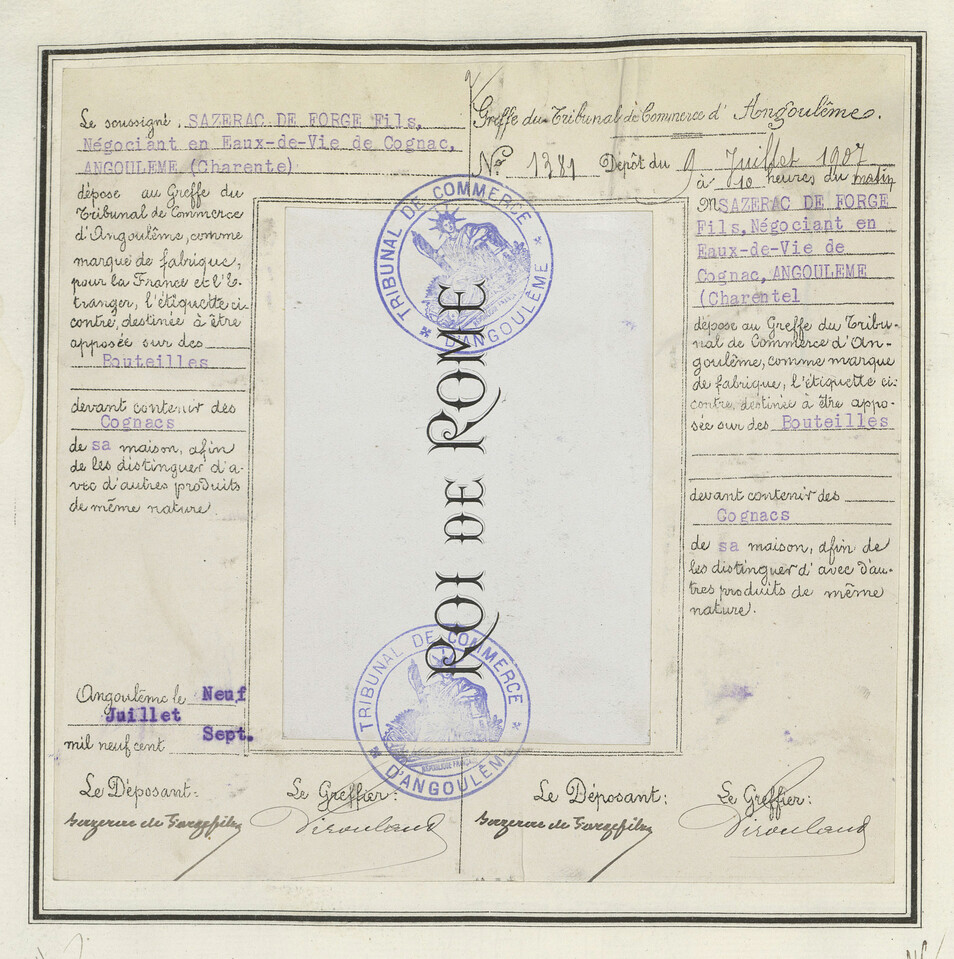 Le soussigné, SAZERAC DE FORGE Fils,
Négociant en Eaux-de-Vie de Cognac,
ANGOULEME (Charente)
dépose au Greffe du
Tribunal de Commerce
d'Angoulême, comme
marque de fabrique,
pour la France et l'É-
tranger, l'étiquette ci-
contre, destinée à être
apposée sur des
Bouteilles
devant contenir des
Cognacs
de sa maison, afin
de les distinguer d'a-
vec d'autres produits
de même nature.
Angoulême le Neuf
Juillet
mil neuf cent Sept.
Le Déposant:
Sazerac de Forge fils
Le Greffier:
TRIBUNAL DE COMMERCE
D'ANGOULÊME
ROI DE ROME
TRIBUNAL DE COMMERCE
D'ANGOULÊME
RÉPUBLIQUE FRANÇ
Greffe du Tribunal de Commerce d'Angoulême.
No 1381 Dépôt du 9 Juillet 1907
à 10 heures du matin
M SAZERAC DE FORGE
Fils, Négociant en
Eaux-de-Vie de
Cognac, ANGOULEME
(Charentel
dépose au Greffe du Tribu-
nal de Commerce d'An-
goulême, comme marque
de fabrique, l'étiquette ci-
contre, destinée à être appo-
sée sur des Bouteilles
devant contenir des
Cognacs
de sa maison, afin de
les distinguer d'avec d'au-
tres produits de même
nature.
Le Déposant:
Sazerac de Forge fils
Le Greffier: